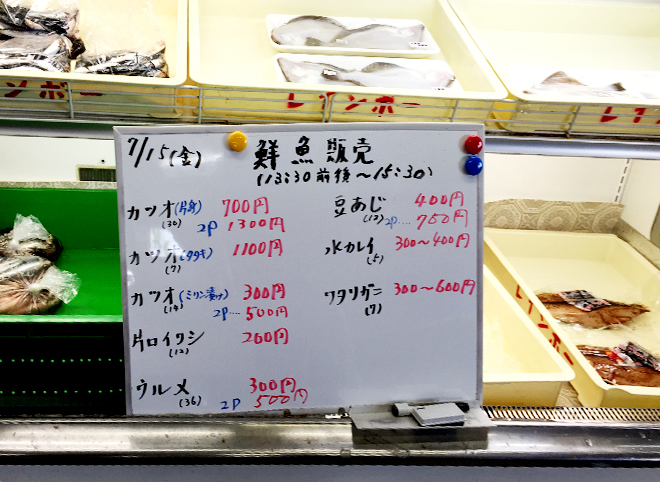 レインボー
レインボー
レイン
7/15(金)
鮮魚販売
(13:30前後〜15:30)
カツオ(片身) 700円
(30) 2P 1300円
カツオ(タタキ) 1100円
(7)
カツオ(ミリン漬け) 300円
(14) 2P.... 500円
片口イワシ 200円
(12)
ウルメ 300円
(36) 2P 500円
豆あじ 400円
(12) 2P.... 700円
水カレイ 300〜400円
(5)
ワタリガニ 300〜600円
(7)
レインボー